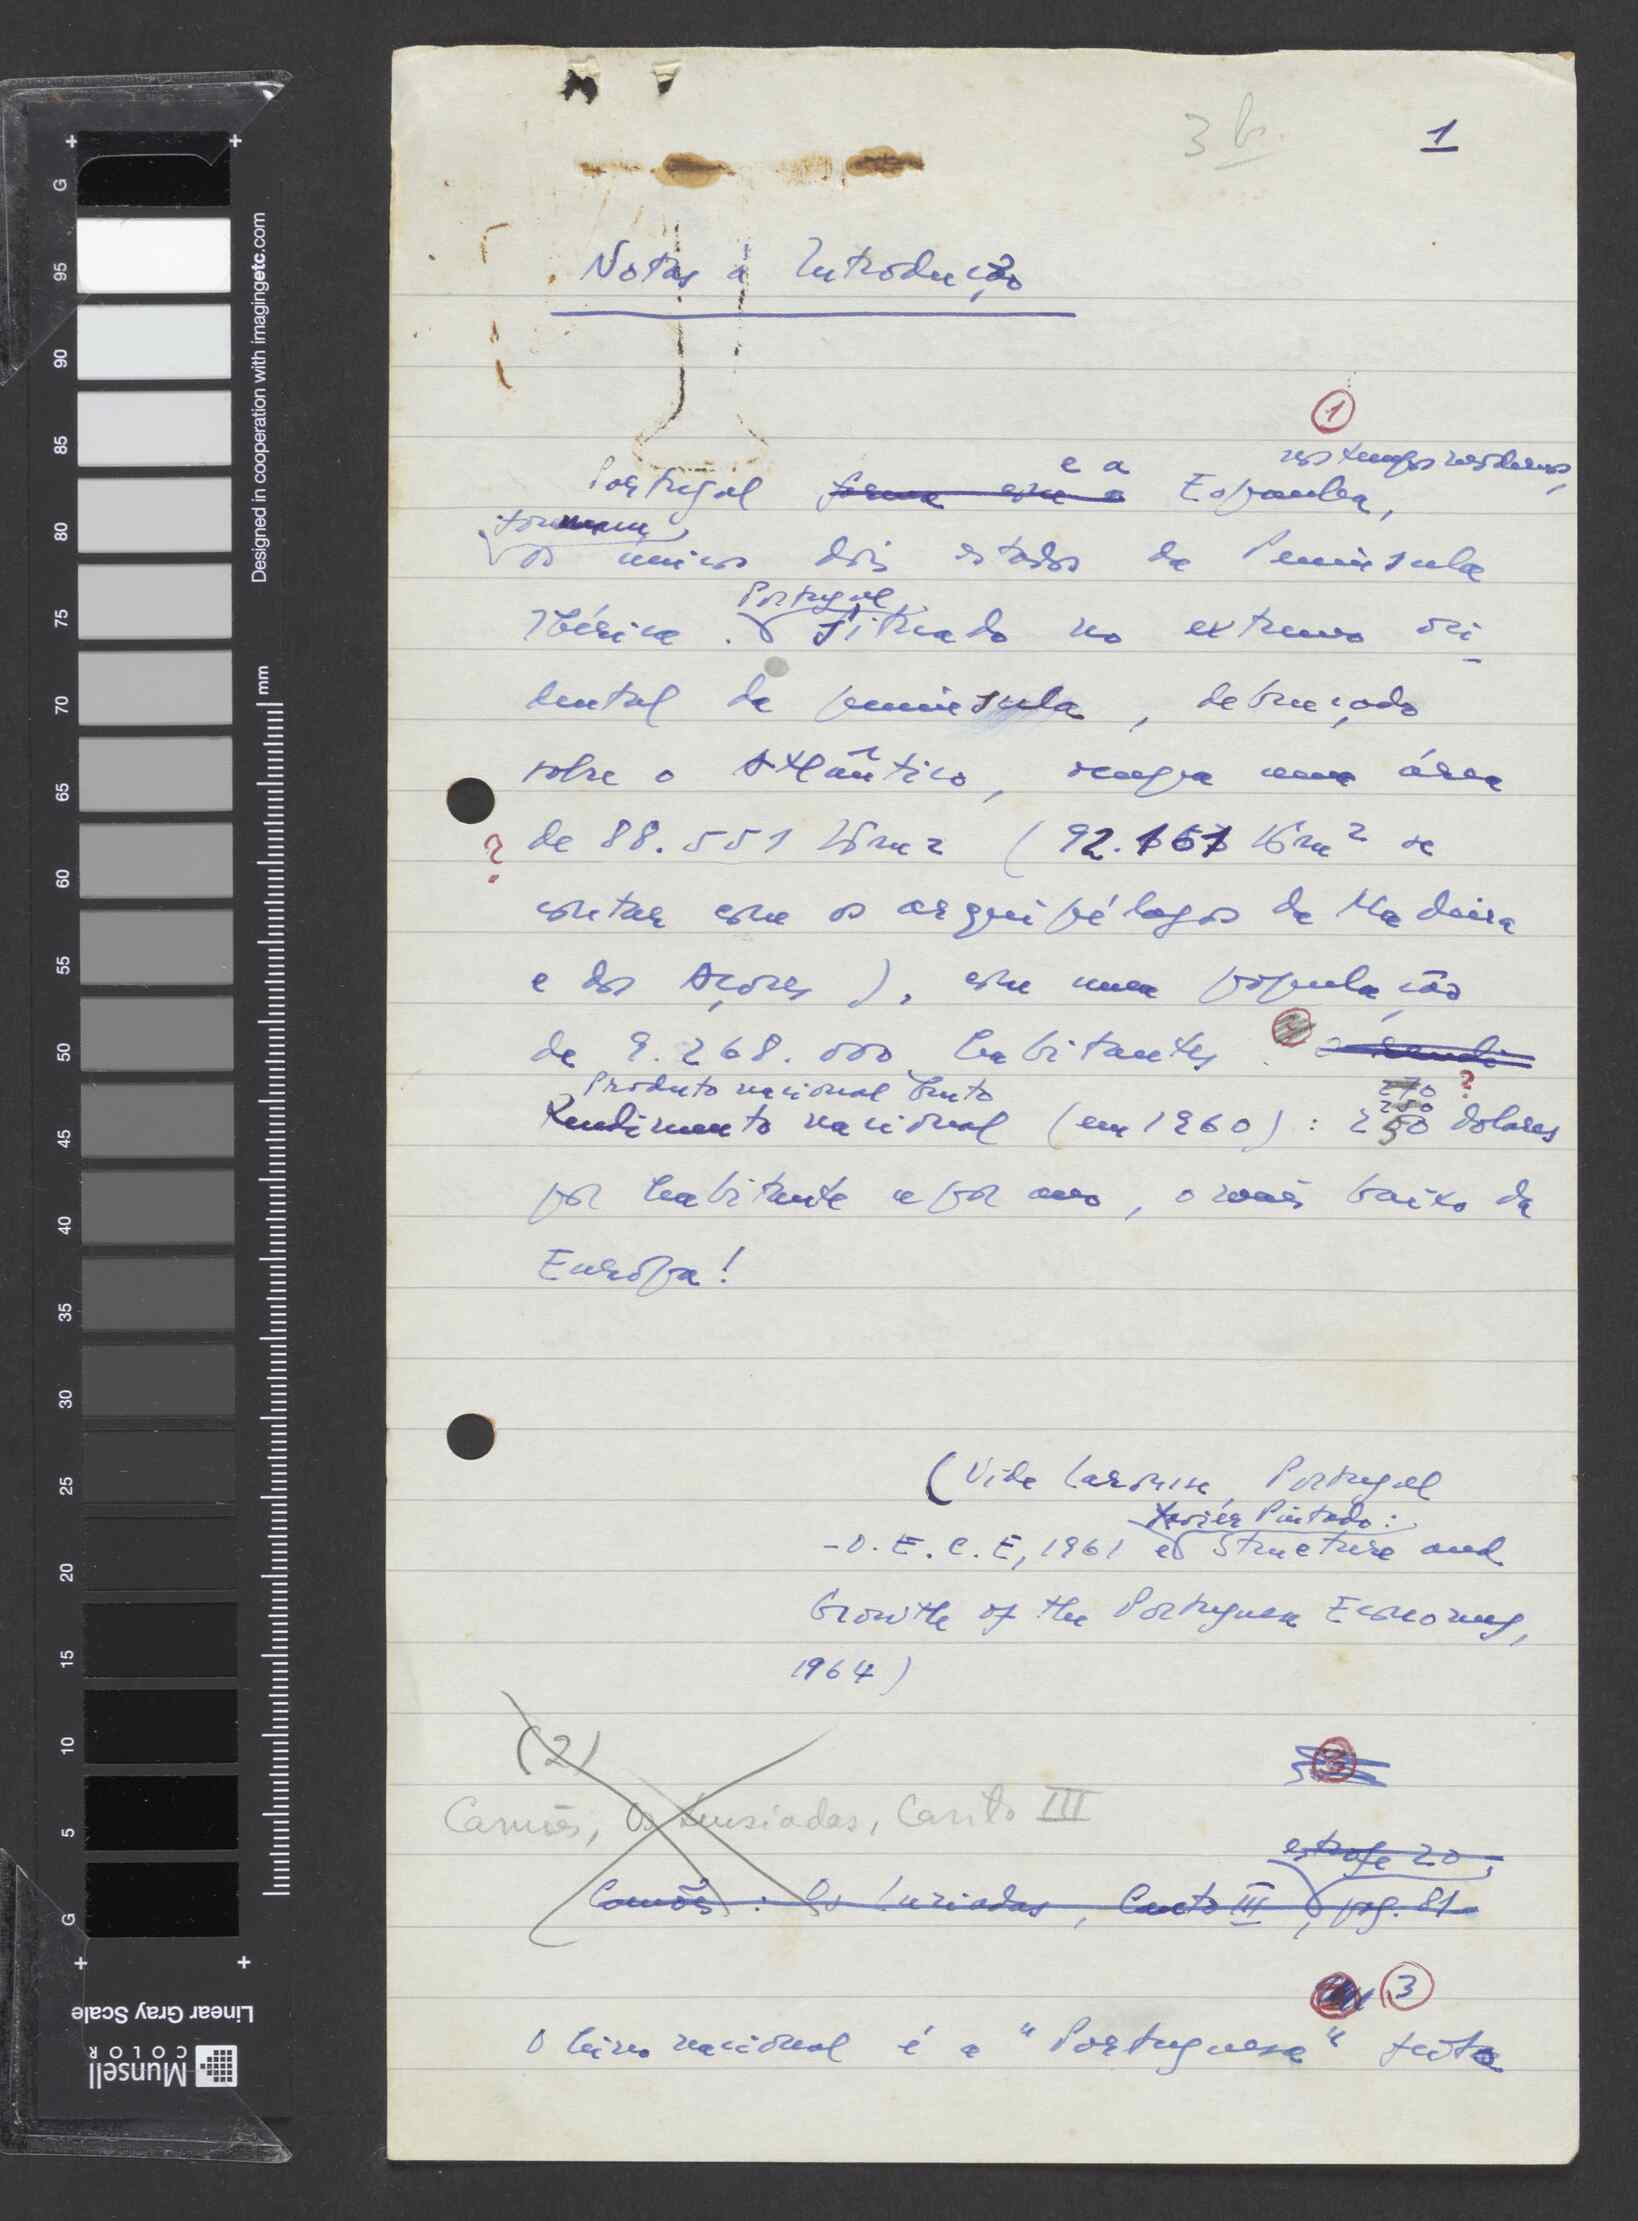 3 b. 1
Notas à Introdução
1
e a nos tempos modernos,
Portugal forma com a Espanha,
formam
os únicos dois estados da Peninsula
Portugal
Ibérica. Situado no extremo oci
dental da peninsula, debruçado
sobre o Atlântico, ocupa uma área
? de 88.551 Km2 (92.161 Km2 se
contar com os arquipélagos da Madeira
e dos Açores), com uma população
de 9.268.000 habitantes. o rendi
Produto nacional bruto 270 ?
250
Rendimento nacional (em 1960): 250 dolares
por habitante e por ano, o mais baixo da
Európa!
(Vide Larousse, Portugal
Xavier Pintado:
-O.E.C.E, 1961 e Structure and
Growth of the Portuguese Economy,
1964)
(2) 3
Camões, Os Lusiadas, Canto III
estrofe 20,
Camões: Os Lusiadas, Canto III, pag. 81
3
O hino nacional é a "Portuguesa" feita
G
95
90
85
80
75
70
65
60
55
50
45
40
35
30
25
20
15
10
5
G
Designed in cooperation with imagingetc.com
mm
Linear Gray Scale
Munsell
COLOR